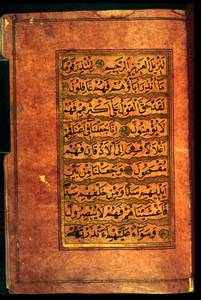 تَنْزِيلَ الْعَزِيزِ الرَّحِيمِ لِتُنْذِرَ قَوْمًا
مَا أُنْذِرَ آبَاؤُهُمْ فَهُمْ غَافِلُونَ
لَقَدْ حَقَّ الْقَوْلُ عَلَى أَكْثَرِهِمْ فَهُمْ
لَا يُؤْمِنُونَ إِنَّا جَعَلْنَا فِي أَعْنَاقِهِمْ
أَغْلَالًا فَهِيَ إِلَى الْأَذْقَانِ فَهُمْ
مُقْمَحُونَ وَجَعَلْنَا مِنْ بَيْنِ
أَيْدِيهِمْ سَدًّا وَمِنْ خَلْفِهِمْ سَدًّا
فَأَغْشَيْنَاهُمْ فَهُمْ لَا يُبْصِرُونَ
وَسَوَاءٌ عَلَيْهِمْ أَأَنْذَرْتَهُمْ